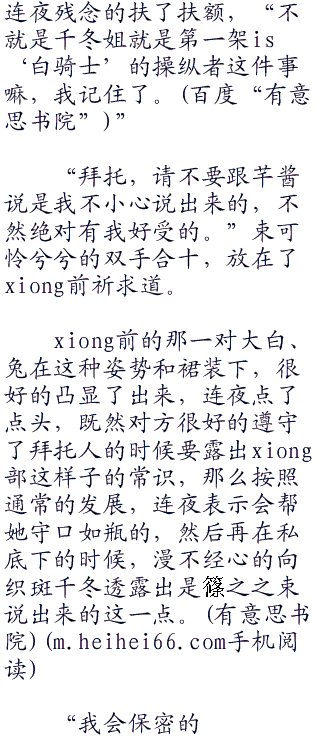 连夜残念的扶了扶额，“不
就是千冬姐就是第一架is
‘白骑士’的操纵者这件事
嘛，我记住了。(百度“有意
思书院”)”
“拜托，请不要跟芊酱
说是我不小心说出来的，不
然绝对有我好受的。”束可
怜兮兮的双手合十，放在了
xiong前祈求道。
xiong前的那一对大白、
兔在这种姿势和裙装下，很
好的凸显了出来，连夜点了
点头，既然对方很好的遵守
了拜托人的时候要露出xiong
部这样子的常识，那么按照
通常的发展，连夜表示会帮
她守口如瓶的，然后再在私
底下的时候，漫不经心的向
织斑千冬透露出是篠之之束
说出来的这一点。(有意思书
院)(m.heihei66.com手机阅
读)
“我会保密的